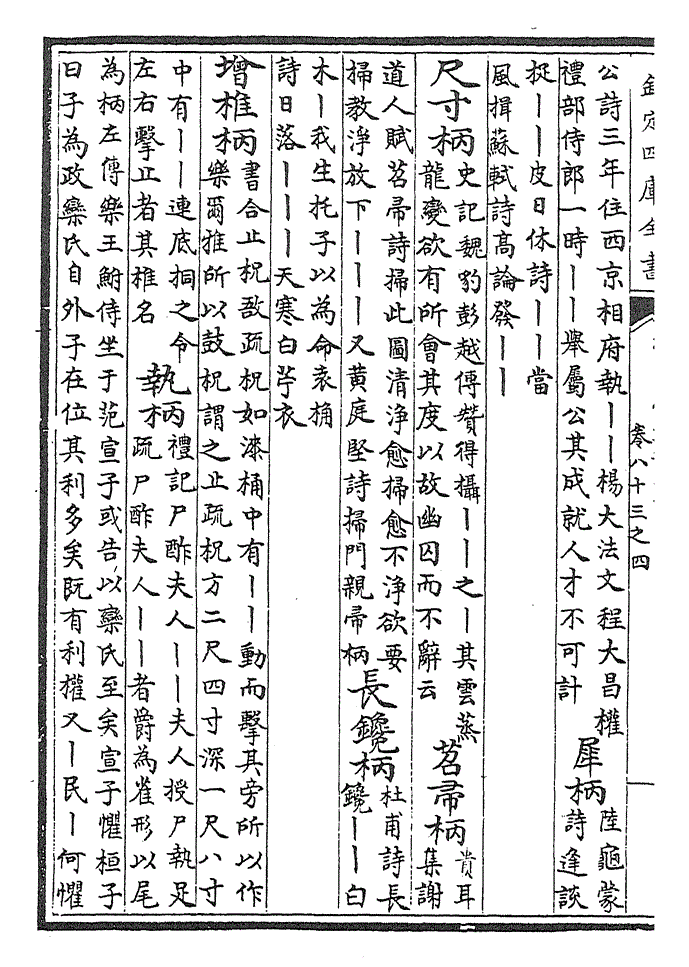 欽定四庫全書
卷八十三之四
公詩三年住西京相府執――楊大法文程大昌權
禮部侍郎一時――舉屬公其成就人才不可計
犀柄
陸龜蒙
詩逢談
捉――皮日休詩――當
風揖蘇軾詩髙論發――
尺寸柄
史記魏豹彭越傳贊得攝――之―其雲蒸
龍變欲有所會其度以故幽囚而不辭云
苕帚柄
貴耳
集謝
道人賦苕帚詩掃此圖清淨愈掃愈不淨欲要
掃教淨放下―――又黄庭堅詩掃門親帚柄
長鑱柄
杜甫詩長
鑱――白
木―我生托子以為命袁桷
詩日落―――天寒白苧衣
增椎柄
書合止柷敔疏柷如漆桶中有――動而擊其旁所以作
樂爾推所以鼓柷謂之止疏柷方二尺四寸深一尺八寸
中有――連底挏之令
左右擊止者其椎名
執柄
禮記尸酢夫人――夫人授尸執足
疏尸酢夫人――者爵為雀形以尾
為柄左傳樂王鮒侍坐于范宣子或告以欒氏至矣宣子懼桓子
曰子為政欒氏自外子在位其利多矣既有利權又―民―何懼